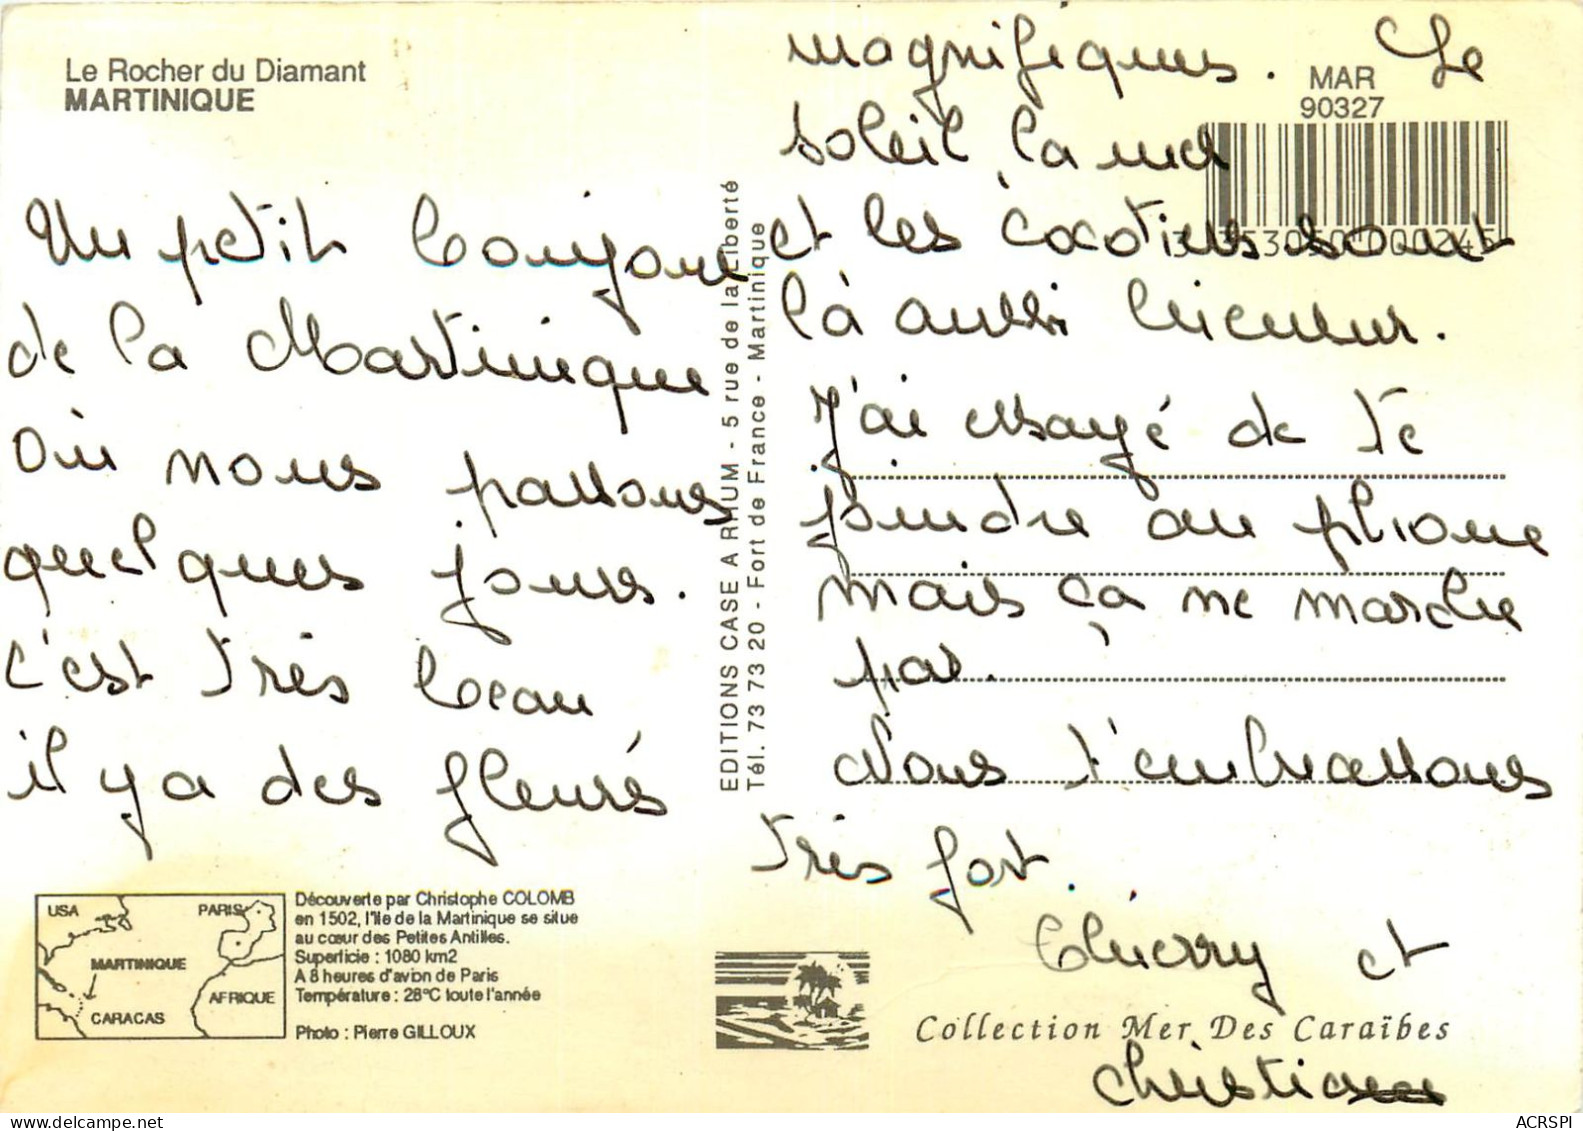 Le Rocher du Diamant
MARTINIQUE
Un petit bonjour
de la Martinique
où nous passons
quelques jours.
c'est très beau
il y a des fleurs
USA
PARIS
MARTINIQUE
AFRIQUE
CARACAS
Découverte par Christophe COLOMB
en 1502, l'île de la Martinique se situe
au cœur des Petites Antilles.
Superficie : 1080 km2
A 8 heures d'avion de Paris
Température : 28°C toute l'année
Photo : Pierre GILLOUX
EDITIONS CASE A RHUM - 5 rue de la Liberté
Tél. 73 73 20 - Fort de France - Martinique
MAR
90327
magnifiques. Le
soleil, la mer
et les cocotiers sont
là aussi
J'ai essayé de te
joindre au phone
mais ça ne marche
pas.
Nous t'embrassons
très fort.
Thierry et
Collection Mer Des Caraïbes
ACRSPI